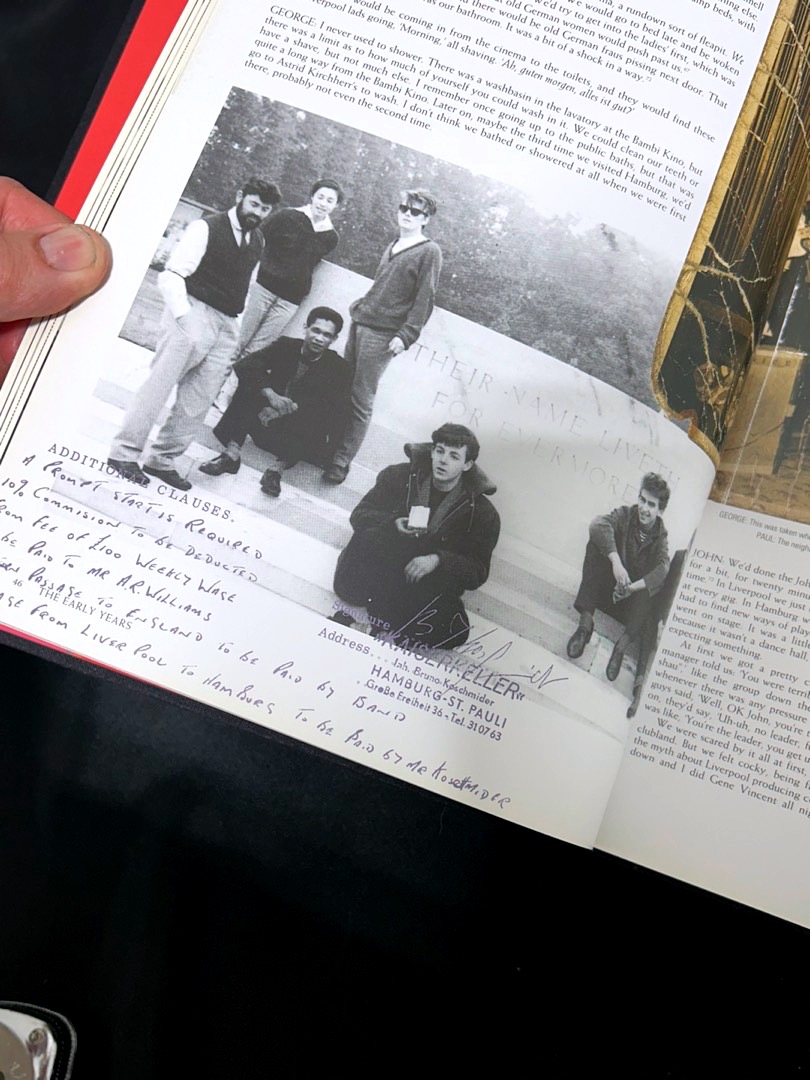 a rundown sort of fleapit. We
we would go to bed late and be woken
We'd try to get into the ladies' first, which was
old German women would push past us.
would be coming in from the cinema to the toilets, and they would find these
lads going, 'Morning,' all shaving. 'Ah, guten morgen, alles ist gut?'
there would be old German fraus pissing next door. That
our bathroom. It was a bit of a shock in a way.
GEORGE: I never used to shower. There was a washbasin in the lavatory at the Bambi Kino, but
there was a limit as to how much of yourself you could wash in it. We could clean our teeth or
have a shave, but not much else. I remember once going up to the public baths, but that was
quite a long way from the Bambi Kino. Later on, maybe the third time we visited Hamburg, we'd
go to Astrid Kirchherr's to wash. I don't think we bathed or showered at all when we were first
there, probably not even the second time.
THEIR NAME LIVETH
FOR EVERMORE
ADDITIONAL CLAUSES.
A PROMPT START IS REQUIRED
10% COMMISION TO BE DEDUCTED
FROM FEE OF £100 WEEKLY WAGE
BE PAID TO MR A.R. WILLIAMS
PASSAGE TO ENGLAND TO BE PAID BY BAND
FROM LIVERPOOL TO HAMBURG TO BE PAID BY MR KOSCHMIDER
46 THE EARLY YEARS
Signature
KAISERKELLER"
Address... Jah. Bruno Koschmider
HAMBURG-ST. PAULI
Große Freiheit 36 - Tel. 310763
GEORGE: This was taken
PAUL: The
JOHN: We'd done the
for a bit, for twenty
time. In Liverpool we just
at every gig. In Hamburg
had to find new ways of
went on stage. It was a little
because it wasn't a dance hall
expecting something.
At first we got a pretty
manager told us, 'You were
like the group down the
whenever there was any pressure
guys said, 'Well, OK John, you're
on, they'd say, 'Uh-uh, no leader
was like, 'You're the leader, you get
We were scared by it all at first
clubland. But we felt cocky, being
the myth about Liverpool producing
down and I did Gene Vincent all